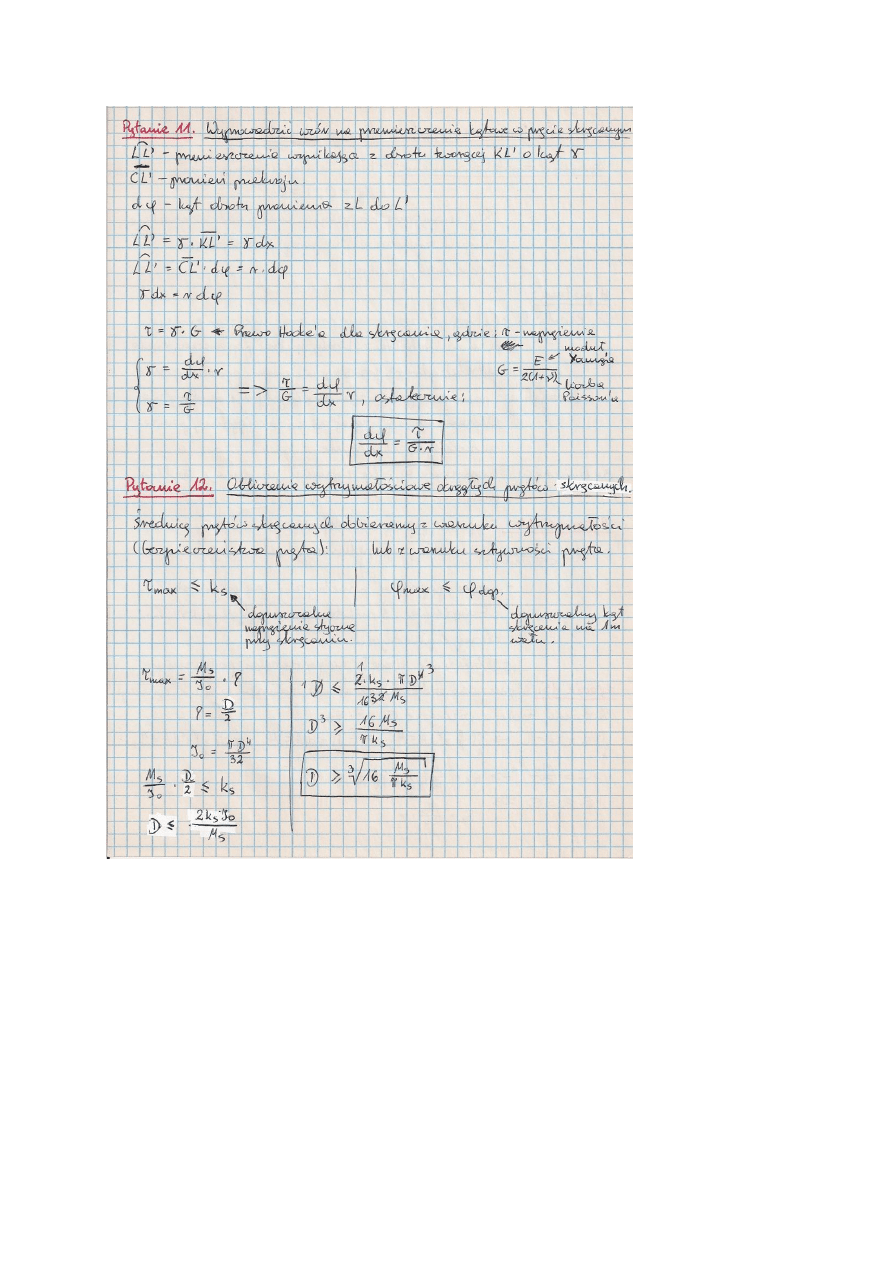 Pytanie 11. Wyprowadzić wzór na przemieszczenia kątowe w pręcie skręcanym
LL' - przemieszczenie wynikające z obrotu tworzącej KL' o kąt γ
CL' - promień przekroju
dφ - kąt obrotu promienia z L do L'
LL' = γ · KL' = γ dx
LL' = CL' · dφ = r · dφ
γ dx = r dφ
τ = γ · G ← Prawo Hooke'a dla skręcania, gdzie: τ - naprężenie
G = E / 2(1+ν)
moduł Younga
liczba Poisson'a
γ = dφ/dx · r
γ = τ/G
=> τ/G = dφ/dx r, ostatecznie:
dφ/dx = τ / G·r
Pytanie 12. Obliczenia wytrzymałościowe okrągłych prętów skręcanych.
Średnicę prętów skręcanych dobieramy z warunku wytrzymałości
(bezpieczeństwa pręta): lub z warunku sztywności pręta.
τmax ≤ ks | φmax ≤ φdop.
dopuszczalne naprężenie styczne przy skręcaniu.
dopuszczalny kąt skręcenia na 1m wału.
τmax = Ms/J₀ · ρ
ρ = D/2
J₀ = πD⁴/32
Ms/J₀ · D/2 ≤ ks
D ≤ 2ks·J₀ / Ms
1 D ≤ 2·ks · πD⁴ ³ / 16 32 Ms
D³ ≥ 16 Ms / π ks
D ≥ ³√16 Ms / π ks